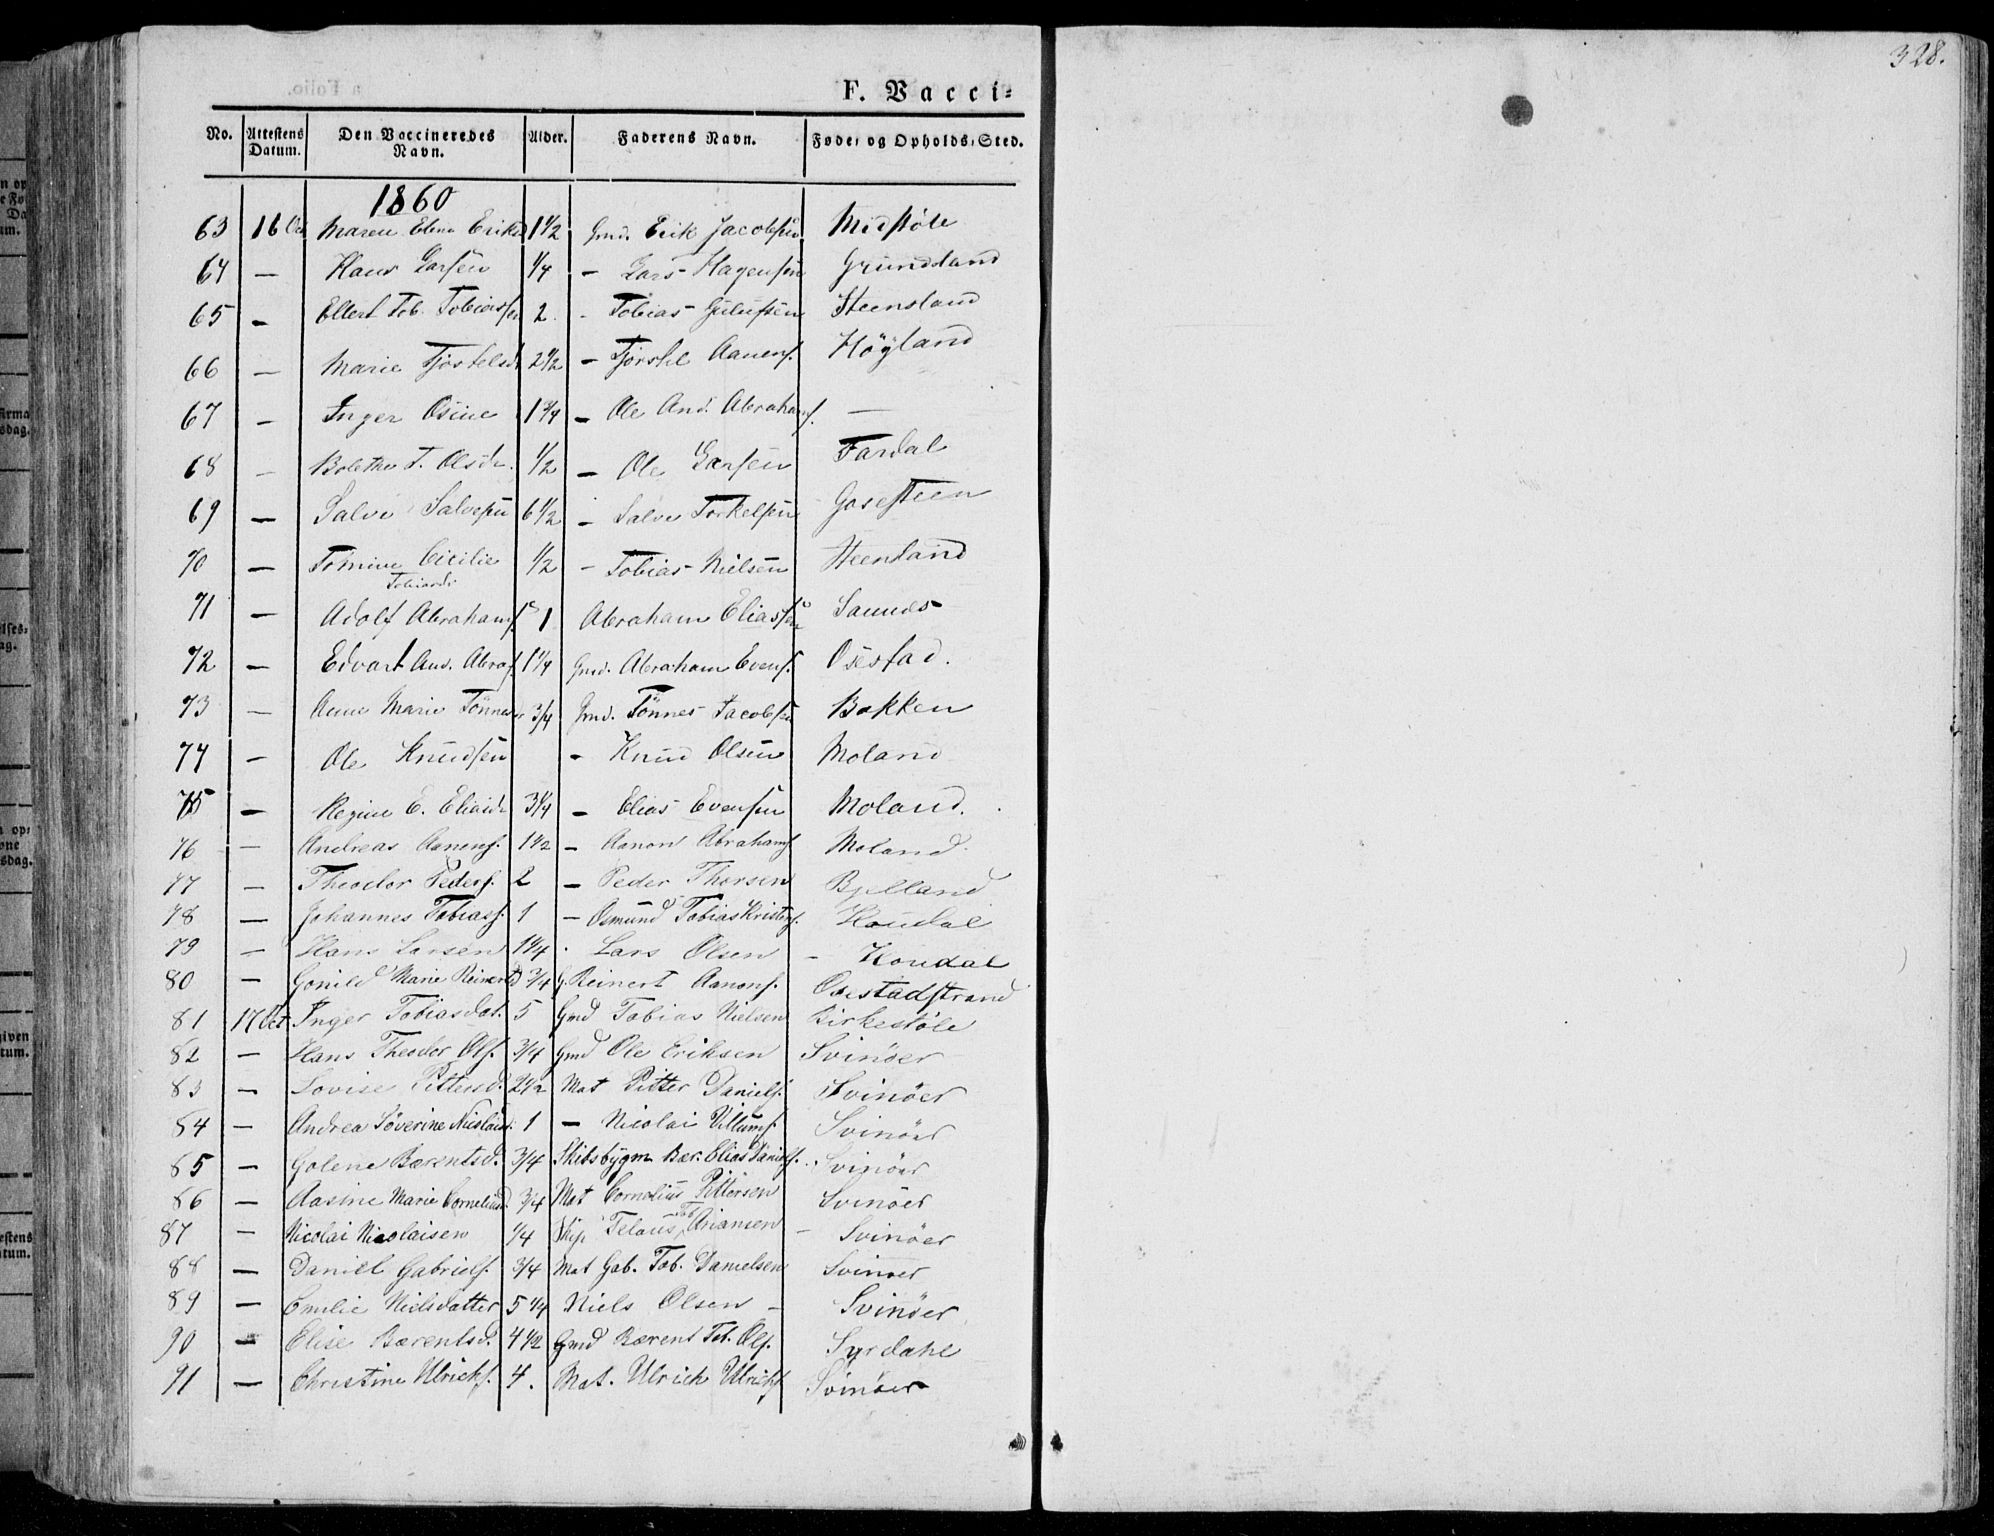 328.
F. Vacci-
No. Attestens Datum. Den Vaccineredes Navn. Alder. Faderens Navn. Føde- og Opholds-Sted.
1860
63 16 Oct Maren Elene Eriksd 1 1/2 Gmd. Erik Jacobsen Midstöle
64 — Hans Larsen 1/4 — Lars Hagensen Grundland
65 — Ellert Tob. Tobiassen 2 - Tobias Steensland
66 — Marie Fjostelsd 2 1/2 — Aanens. Höyland
67 — Inger Osine 1 3/4 — Ole And. Abrahams. —
68 — Bolethe T. Olsdr. 1/2 — Ole Larsen Fardal
69 — Salve Salvesen 6 1/2 — Salve Torkelsen Gosesteen
70 — Tomine Cicilie Tobiasdr 1/2 - Tobias Nielsen Steenland
71 — Adolf Abrahams. 1 Abraham Eliassen Saunes
72 — Edvart And. Abrah. 1 1/4 Gmd. Abraham Evens. Osestad.
73 — Anne Marie Tönnesdr 3/4 Gmd. Tönnes Jacobsen Bakken
74 — Ole Knudsen - Knud Olsen Moland
75 — Regine E. Eliasdr 3 1/4 — Elias Evensen Moland.
76 — Andreas Aanens. 1 1/2 — Aanon Abrahams. Moland.
77 — Theodor Peders. 2 — Peder Thorsen Bjelland
78 — Johannes Tobiass. 1 — Osmund Tobias Kristens. Houdal
79 — Hans Larsen 1 1/4 - Lars Olsen - Houdal
80 — Gonild Marie Reinertsd 3/4 G. Reinert Aanons. Osestadstrand
81 17 Oct Inger Tobiasdat. 5 Gmd Tobias Nielsen Birkestöle
82 — Hans Theodor Ols. 3/4 Gmd Ole Eriksen Svinöer
83 — Lovise Pittersd. 2 1/2 Mat Pitter Daniels. Svinöer
84 — Andrea Söverine Nicolaisd. 1 — Nicolai Villums. Svinöer
85 — Golene Bærentsd. 3/4 Skibsbygm. Bær. Elias Daniels. Svinöer
86 — Aasine Marie Corneliusd. 3/4 Mat Cornelius Pittersen Svinöer
87 — Nicolai Nicolaisen 1/4 Skip Telaus Tob Ariansen - Svinöer
88 — Daniel Gabriels. 3/4 Mat Gab. Tob. Danielsen Svinöer
89 — Emilie Nielsdatter 5 1/4 Niels Olsen — Svinöer
90 — Elise Bærentsd. 4 1/2 Gmd Bærent Tob. Ols. Syrdahl
91 — Christine Ulrichs. 4. Mat. Ulrich Ulrichs. Svinöer